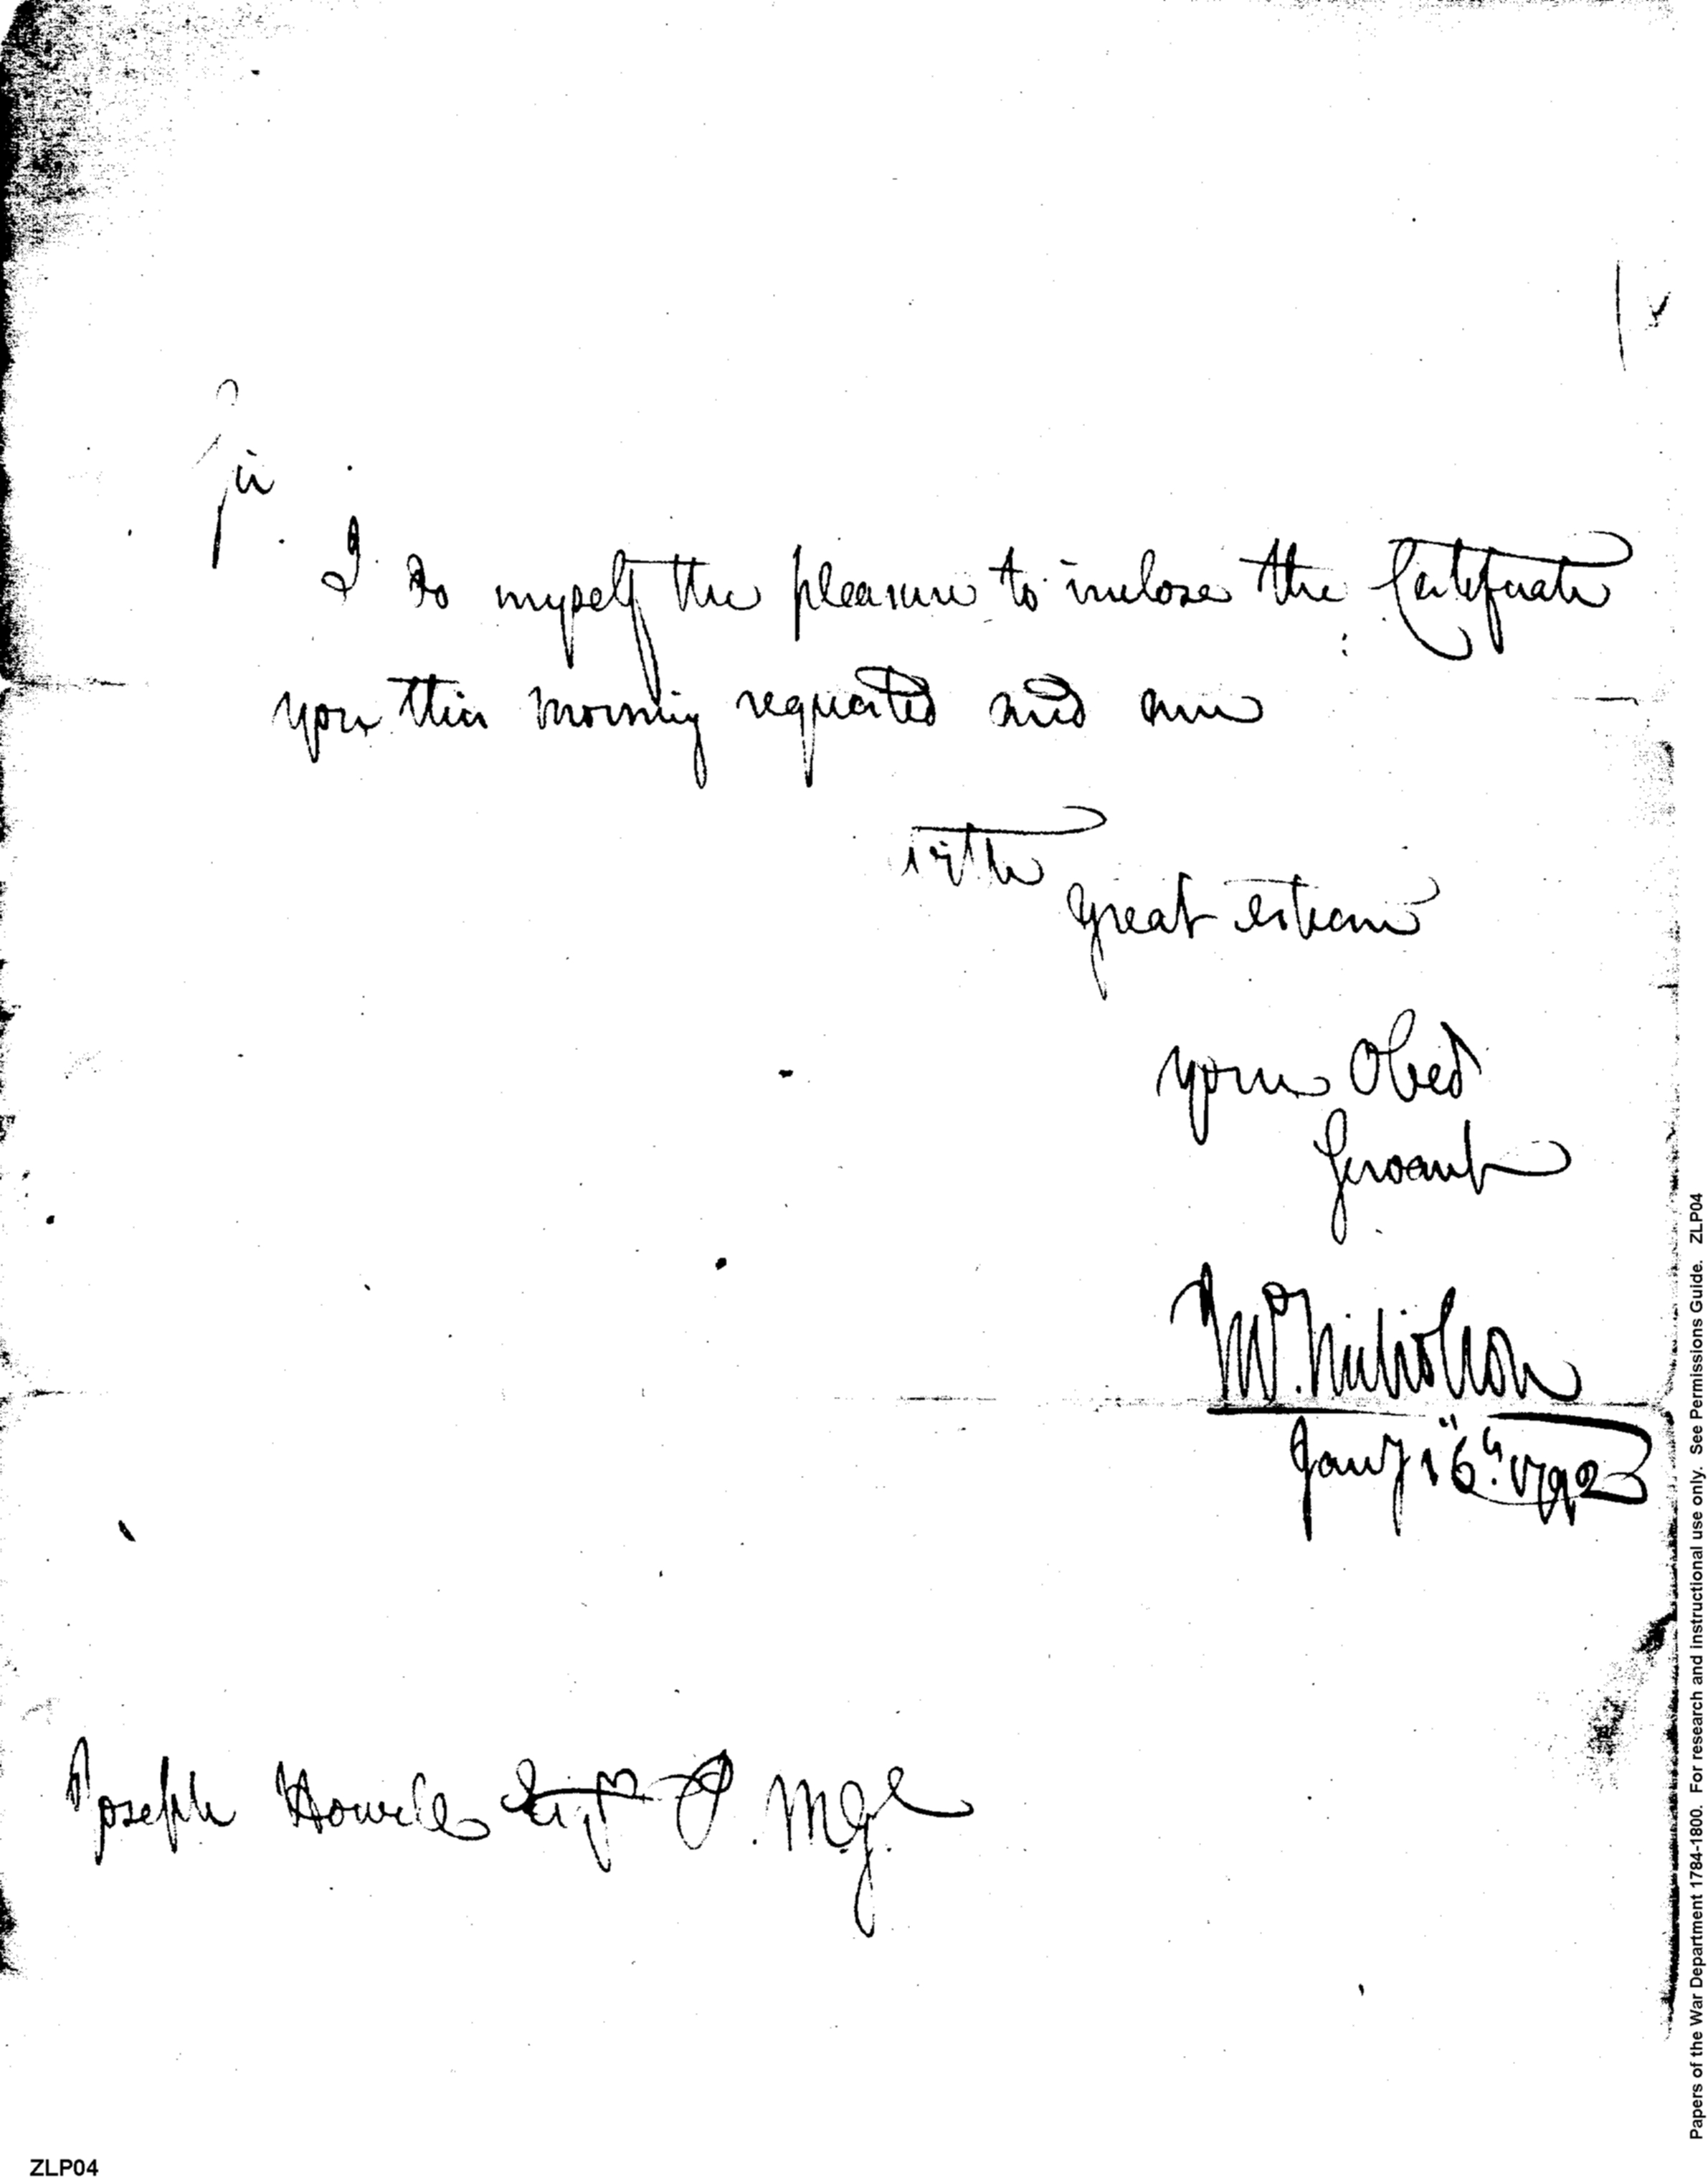 Sir
I do myself the pleasure to inclose the Certificate
you this morning requested and am
with
great esteem
your Obed
Servant
Wm. Nicholson
Jany 16th. 1792
Joseph Howell Esqr P. M Gl
Papers of the War Department 1784-1800. For research and instructional use only. See Permissions Guide. ZLP04
ZLP04